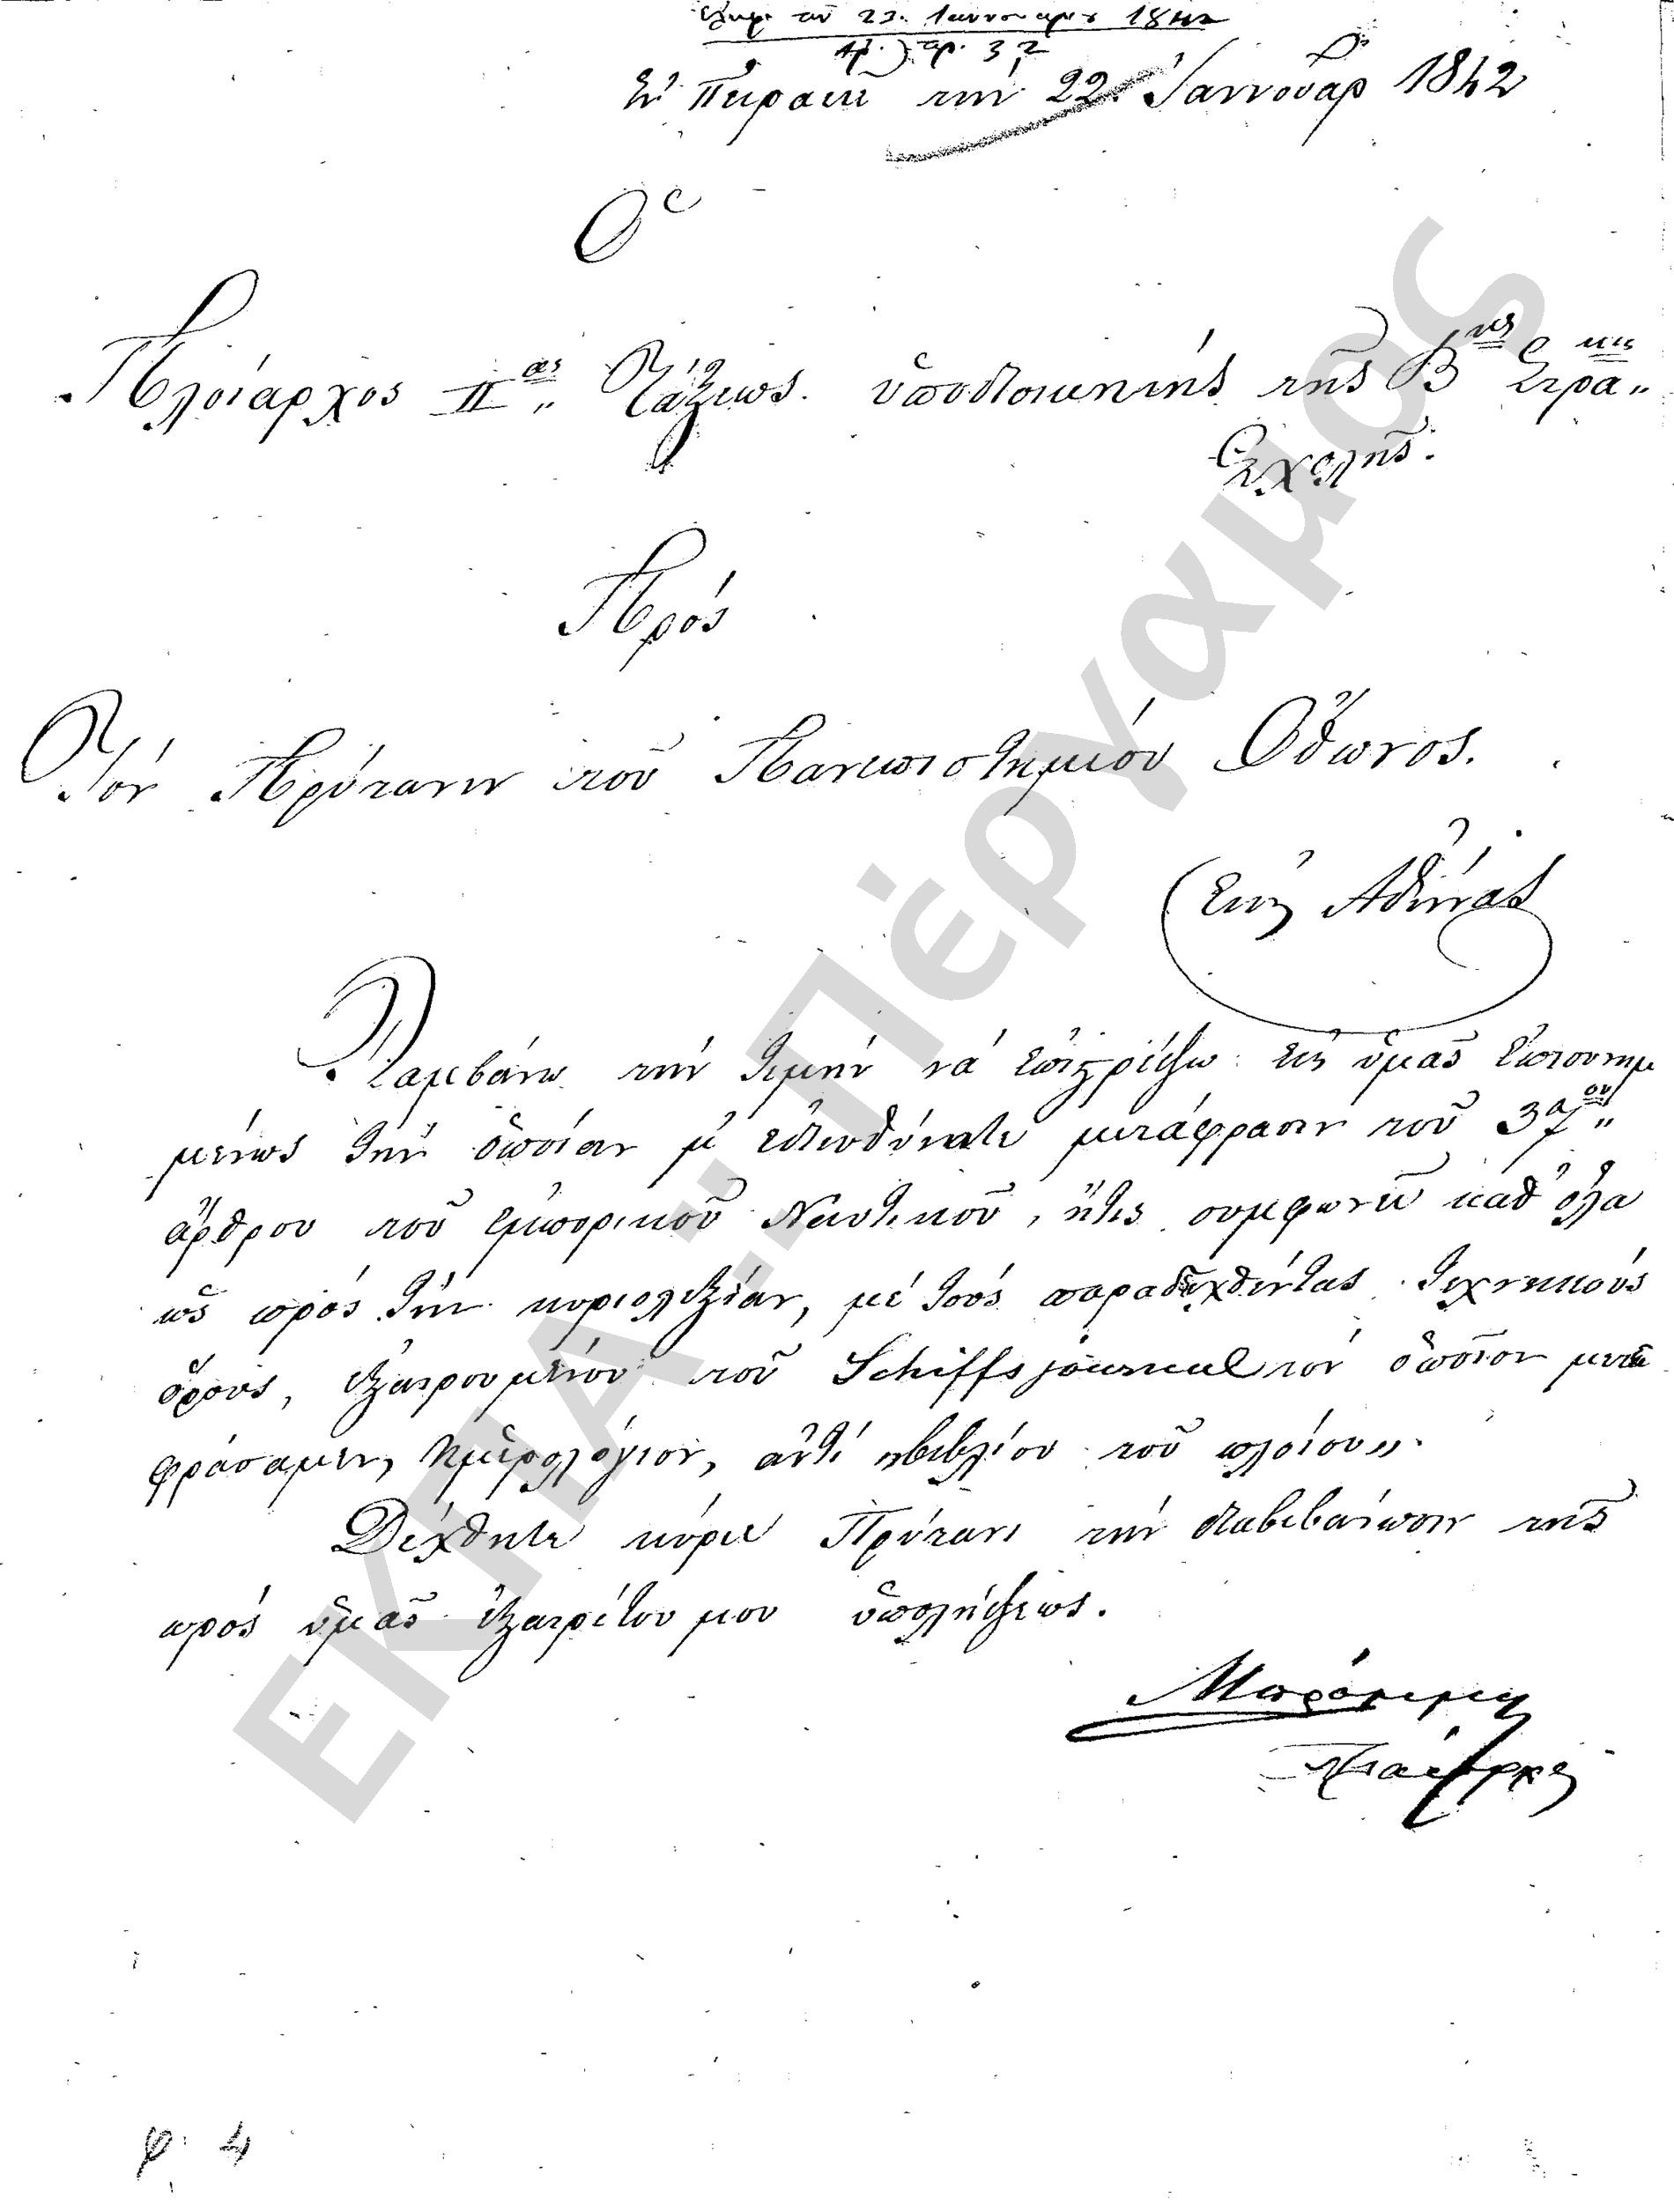 τὴν 23. Ἰαννουαρίου 1842
ἀρ. 32
Ἐν Πειραιεῖ τὴν 22. Ἰαννουαρ 1842
Ὁ
Πλοίαρχος ΙΙας Τάξεως. ὑποδιοικητὴς τῆς Βκῆς Στρα„
Σχολῆς.
Πρὸς
Τὸν Πρύτανιν τοῦ Πανεπιστημίου Ὄθωνος.
Εἰς Ἀθήνας
Λαμβάνω τὴν τιμὴν νὰ ἐπιστρέψω εἰς ὑμᾶς
μένως τὴν ὁποίαν μ' μετάφρασιν τοῦ 37ου
ἄρθρου τοῦ ἐμπορικοῦ Ναυτικοῦ, ἥτις συμφωνεῖ καθ' ὅλα
ὡς πρὸς τὴν κυριολεξίαν, μὲ τοὺς παραδεχθέντας τεχνικοὺς
ὅρους, ἐξαιρουμένου τοῦ Schiffsjournal τὸν ὁποῖον μετε
φράσαμεν, ἡμερολόγιον, ἀντὶ „βιβλίου τοῦ πλοίου„.
Δέχθητε κύριε Πρύτανι τὴν διαβεβαίωσιν τῆς
πρὸς ὑμᾶς ἐξαιρέτου μου ὑπολήψεως.
φ. 4
ΕΚΠΑ :: Πέργαμος